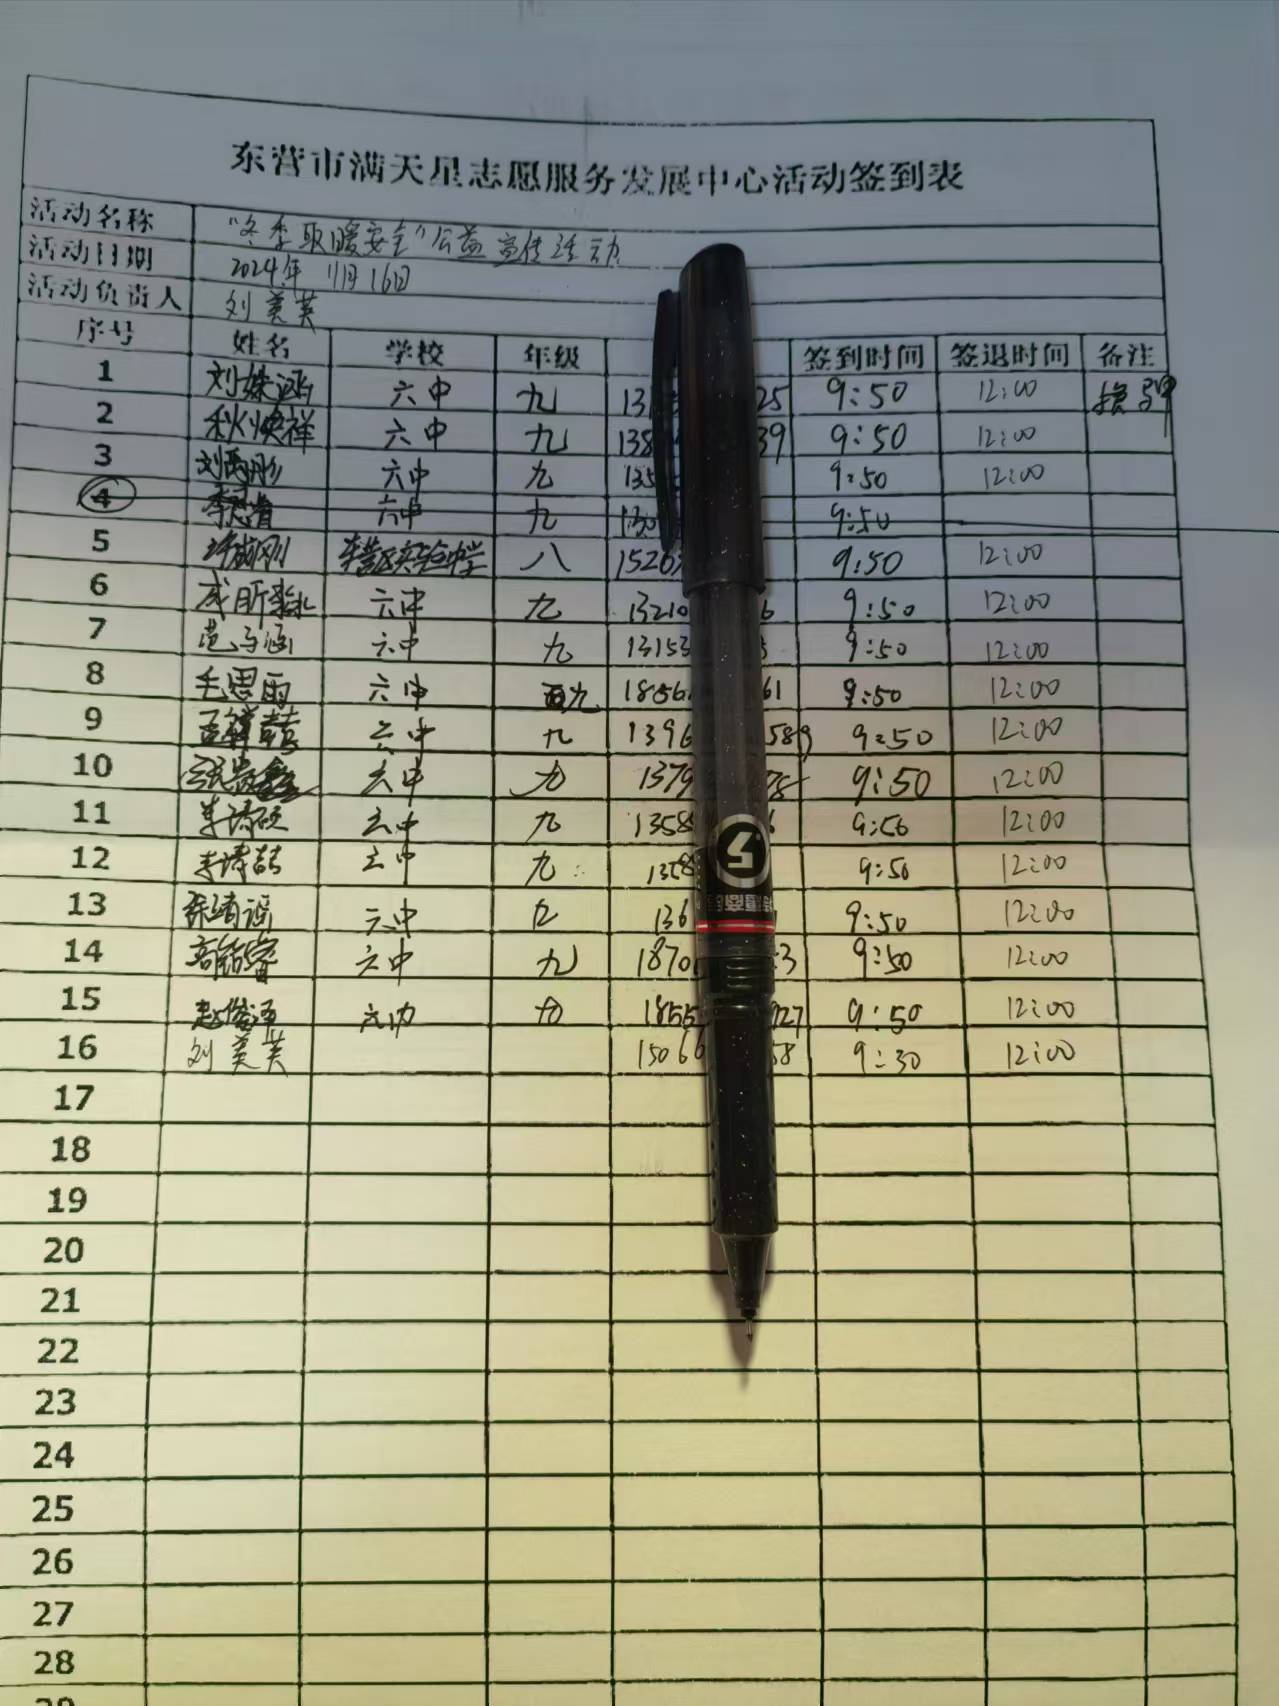 东营市满天星志愿服务发展中心活动签到表
活动名称 "冬季取暖安全"公益宣传活动
活动日期 2024年 11月16日
活动负责人 刘美英
序号 姓名 学校 年级 签到时间 签退时间 备注
1 刘姝涵 六中 九 13 25 9:50 12:00
2 秋焕祥 六中 九 138 39 9:50 12:00
3 刘禹彤 六中 九 135 9:50 12:00
4 六中 九 130 9:50
5 许城刚 东营区实验中学 八 1526 9:50 12:00
6 六中 九 13210 6 9:50 12:00
7 范予涵 六中 九 13153 9:50 12:00
8 毛思雨 六中 九 1856 61 9:50 12:00
9 六中 九 1396 589 9:50 12:00
10 六中 九 1379 78 9:50 12:00
11 李诗硕 六中 九 1358 6 9:50 12:00
12 李诗喆 六中 九 1358 9:50 12:00
13 六中 九 136 9:50 12:00
14 高铭睿 六中 九 1870 3 9:50 12:00
15 赵俊泽 六中 九 1855 927 9:50 12:00
16 刘美英 15066 58 9:30 12:00
17
18
19
20
21
22
23
24
25
26
27
28
29